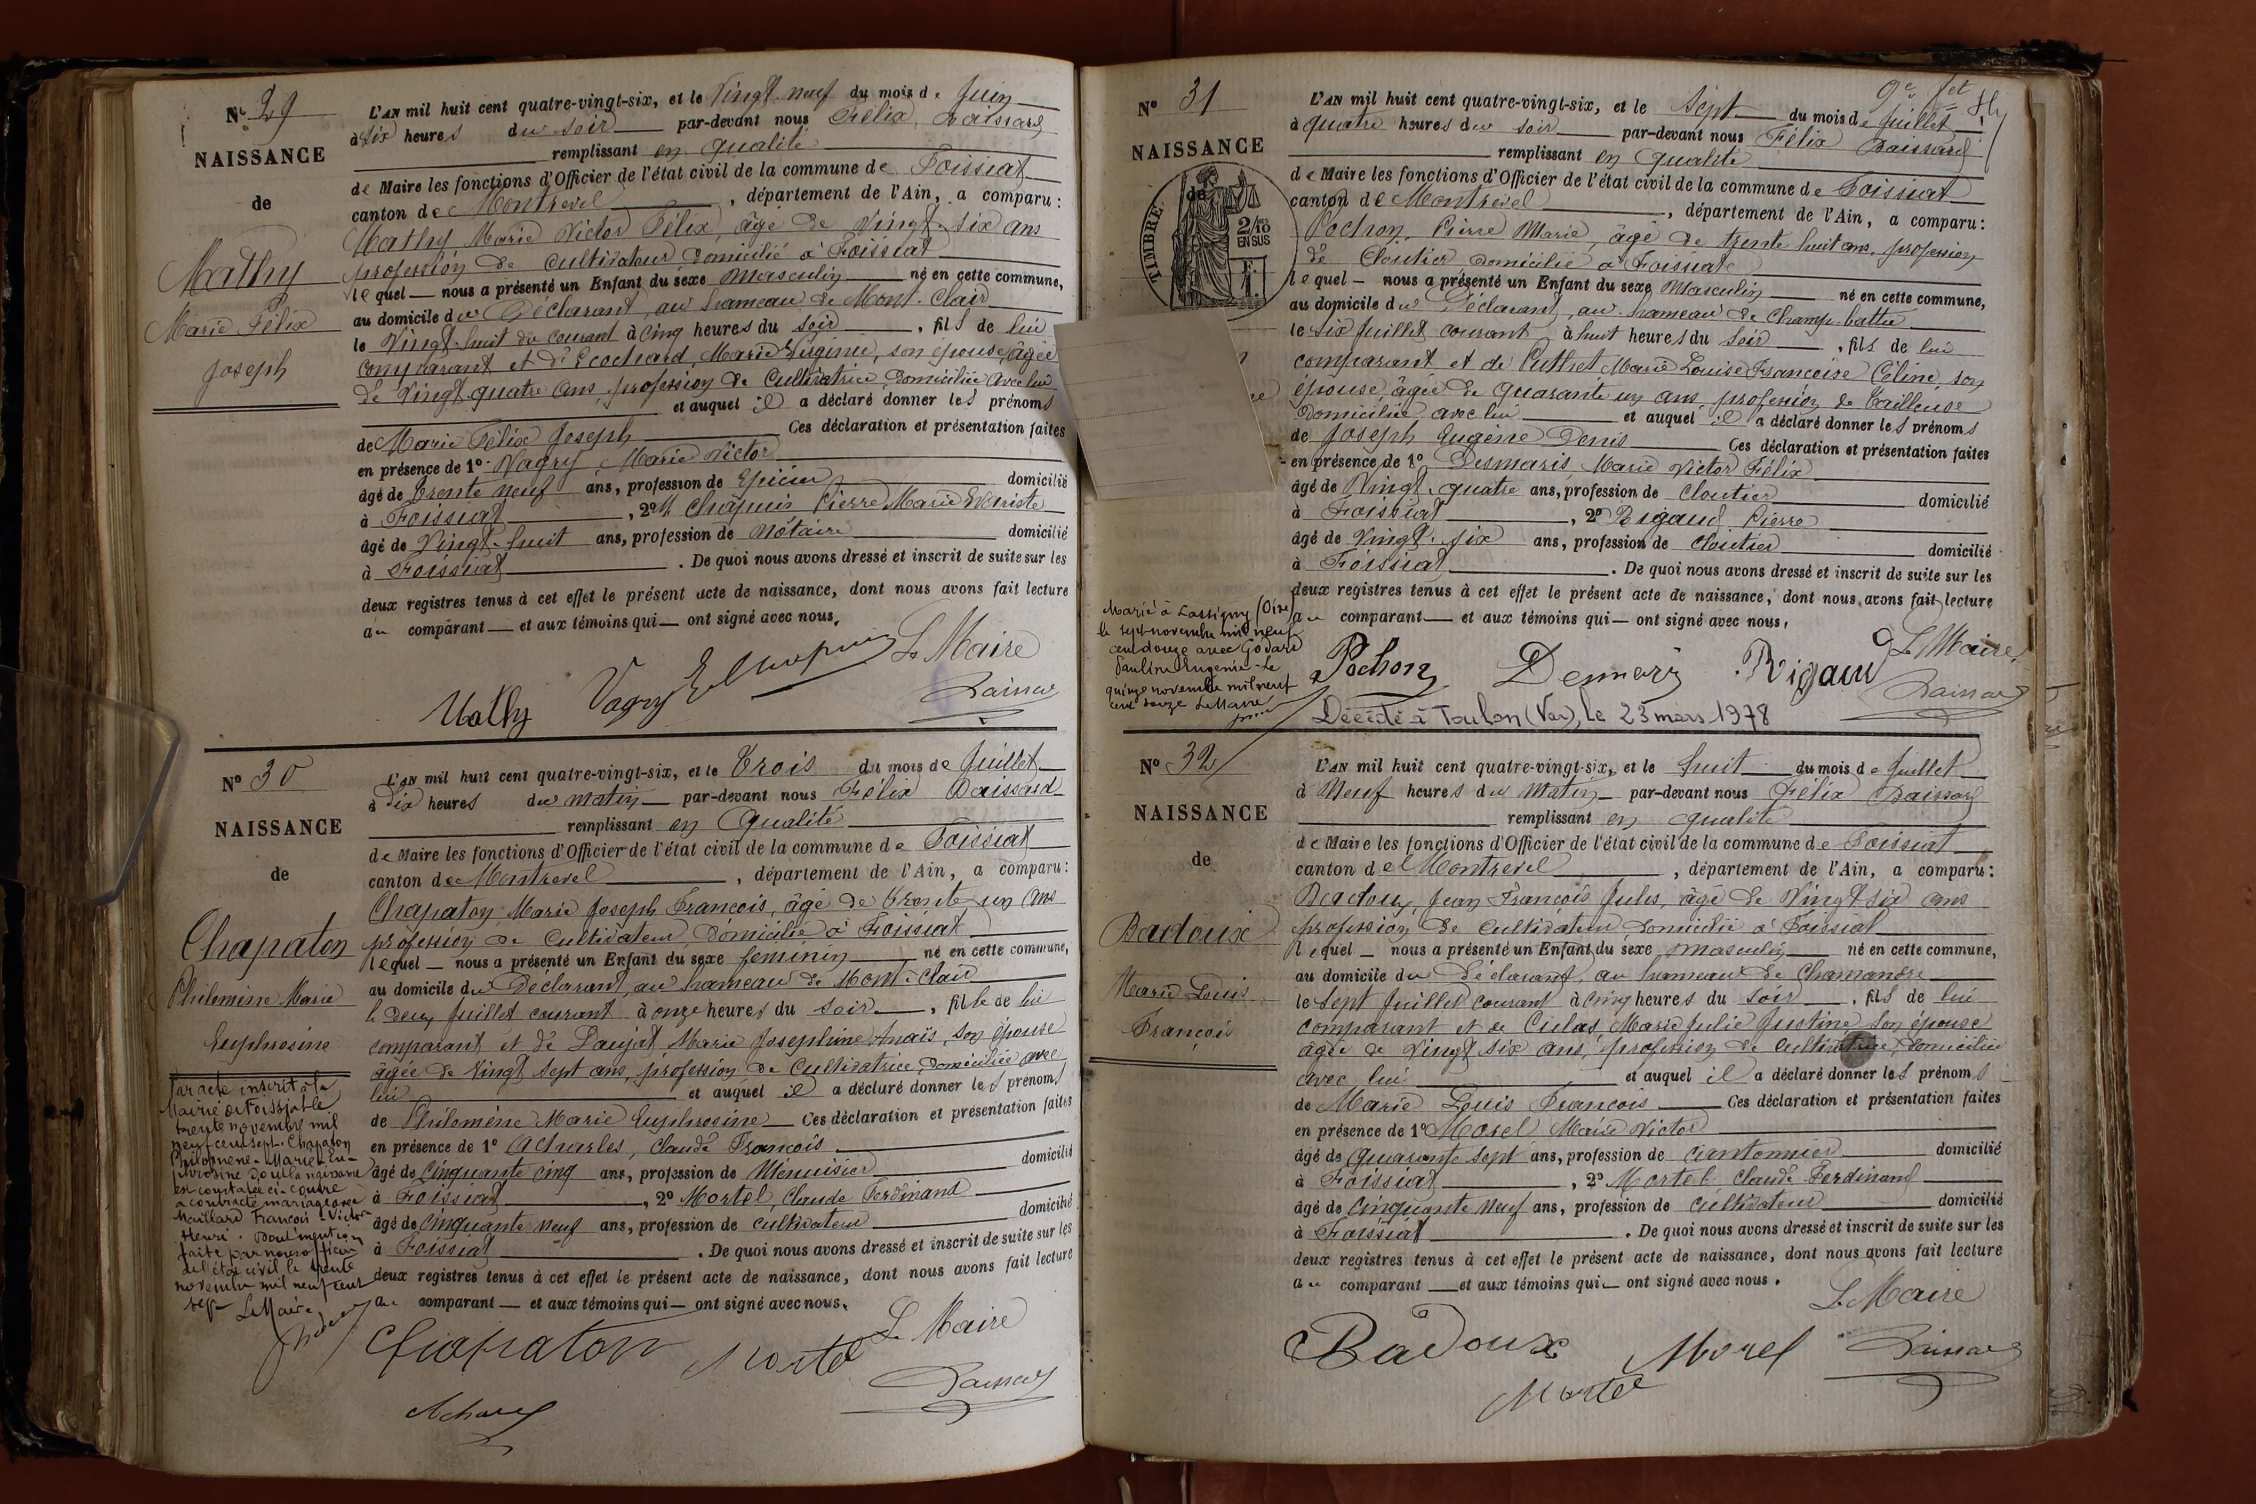 Nº 29
NAISSANCE
de
Mathy
Marie Félix
Joseph
L'AN mil huit cent quatre-vingt-six, et le Vingt-neuf du mois de Juin
à Six heures du soir par-devant nous Félix
remplissant en qualité
de Maire les fonctions d'Officier de l'état civil de la commune de Foissiat
canton de Montrevel, département de l'Ain, a comparu:
Mathy, Marie Victor Félix, âgé de Vingt-six ans
profession de Cultivateur domicilié à Foissiat
lequel nous a présenté un Enfant du sexe masculin né en cette commune,
au domicile du Déclarant, au hameau de Mont-Clair
le Vingt-huit du courant à cinq heures du soir, fils de lui
comparant et d'Ecochard, Marie Virginie, son épouse, âgée
de Vingt-quatre ans, profession de Cultivatrice, domiciliée avec lui
et auquel il a déclaré donner les prénoms
de Marie Félix Joseph Ces déclaration et présentation faites
en présence de 1º Vagry, Marie Victor
âgé de trente neuf ans, profession de Epicier domicilié
à Foissiat, 2º M. Chapuis Pierre Marie Evariste
âgé de Vingt-huit ans, profession de Notaire domicilié
à Foissiat. De quoi nous avons dressé et inscrit de suite sur les
deux registres tenus à cet effet le présent acte de naissance, dont nous avons fait lecture
au comparant et aux témoins qui ont signé avec nous.
Le Maire
Mathy Vagry
Nº 30
NAISSANCE
de
Chapaton
Philomène Marie
Euphrosine
Par acte inscrit à la
Mairie de Foissiat le
trente novembre mil
neuf cent sept, Chapaton
Philomène-Marie-Eu-
phrosine dont la naissance
est constatée ci-contre
a contracté mariage avec
Maillard François-Victor
Henri. Dont mention
faite par nous officier
de l'état civil le trente
novembre mil neuf cent
sept Le Maire
L'AN mil huit cent quatre-vingt-six, et le Trois du mois de Juillet
à dix heures du matin par-devant nous Félix
remplissant en qualité
de Maire les fonctions d'Officier de l'état civil de la commune de Foissiat
canton de Montrevel, département de l'Ain, a comparu:
Chapaton, Marie Joseph François, âgé de trente-un ans
profession de Cultivateur, domicilié à Foissiat
lequel nous a présenté un Enfant du sexe féminin né en cette commune,
au domicile du Déclarant, au hameau de Mont-Clair
le deux Juillet courant à onze heures du soir, fille de lui
comparant et de Marie Joséphine Anaïs, son épouse
âgée de Vingt sept ans, profession de Cultivatrice, domiciliée avec
lui et auquel il a déclaré donner les prénoms
de Philomène Marie Euphrosine Ces déclaration et présentation faites
en présence de 1º Claude François
âgé de Cinquante cinq ans, profession de Menuisier domicilié
à Foissiat, 2º Mortel, Claude Ferdinand
âgé de Cinquante neuf ans, profession de cultivateur domicilié
à Foissiat. De quoi nous avons dressé et inscrit de suite sur les
deux registres tenus à cet effet le présent acte de naissance, dont nous avons fait lecture
au comparant et aux témoins qui ont signé avec nous.
Le Maire
Chapaton Mortel
Nº 31
NAISSANCE
de
TIMBRE
2/10
EN SUS
L'AN mil huit cent quatre-vingt-six, et le Sept du mois de Juillet
à quatre heures du soir par-devant nous Félix
remplissant en qualité
de Maire les fonctions d'Officier de l'état civil de la commune de Foissiat
canton de Montrevel, département de l'Ain, a comparu:
Pochon, Pierre Marie, âgé de trente huit ans, profession
de Cloutier domicilié à Foissiat
lequel nous a présenté un Enfant du sexe masculin né en cette commune,
au domicile du Déclarant, au hameau de Champ-battu
le Six Juillet courant à huit heures du soir, fils de lui
comparant et de Marie Louise Françoise Céline, son
épouse, âgée de quarante un ans, profession de tailleuse
domiciliée avec lui et auquel il a déclaré donner les prénoms
de Joseph Eugène Denis Ces déclaration et présentation faites
en présence de 1º Desmaris, Marie Victor Félix
âgé de Vingt-quatre ans, profession de Cloutier domicilié
à Foissiat, 2º Rigaud Pierre
âgé de Vingt-six ans, profession de Cloutier domicilié
à Foissiat. De quoi nous avons dressé et inscrit de suite sur les
deux registres tenus à cet effet le présent acte de naissance, dont nous avons fait lecture
au comparant et aux témoins qui ont signé avec nous.
Marié à Lassigny (Oise)
le sept novembre mil neuf
cent douze avec Godard
Pauline Eugénie. Le
quinze novembre mil neuf
cent douze Le Maire
Le Maire
Pochon Rigaud
Décédé à Toulon (Var), le 23 mars 1978
Nº 32
NAISSANCE
de
Badoux
Marie Louis
François
L'AN mil huit cent quatre-vingt-six, et le huit du mois de Juillet
à Neuf heures du matin par-devant nous Félix
remplissant en qualité
de Maire les fonctions d'Officier de l'état civil de la commune de Foissiat
canton de Montrevel, département de l'Ain, a comparu:
Badoux, Jean François Jules, âgé de Vingt six ans
profession de cultivateur domicilié à Foissiat
lequel nous a présenté un Enfant du sexe masculin né en cette commune,
au domicile du déclarant, au hameau de Charnandre
le Sept Juillet courant à cinq heures du soir, fils de lui
comparant et de Culas, Marie Julie Justine son épouse
âgée de Vingt six ans, profession de cultivatrice, domiciliée
avec lui et auquel il a déclaré donner les prénoms
de Marie Louis François Ces déclaration et présentation faites
en présence de 1º Morel Marie Victor
âgé de quarante sept ans, profession de cantonnier domicilié
à Foissiat, 2º Mortel Claude Ferdinand
âgé de Cinquante neuf ans, profession de cultivateur domicilié
à Foissiat. De quoi nous avons dressé et inscrit de suite sur les
deux registres tenus à cet effet le présent acte de naissance, dont nous avons fait lecture
au comparant et aux témoins qui ont signé avec nous.
Le Maire
Badoux Morel
Mortel